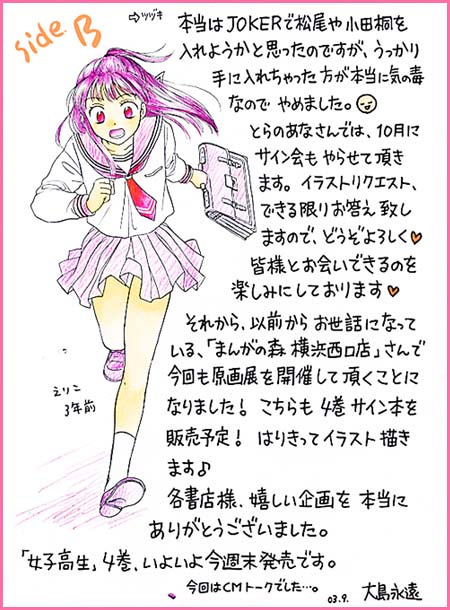 side B
⇨ツヅキ
本当はJOKERで松尾や小田桐を
入れようかと思ったのですが、うっかり
手に入れちゃった方が本当に気の毒
なので やめました。
とらのあなさんでは、10月に
サイン会もやらせて頂き
ます。イラストリクエスト、
できる限りお答え致し
ますので、どうぞよろしく♥
皆様とお会いできるのを
楽しみにしております♥
それから、以前からお世話になって
いる、「まんがの森 横浜西口店」さんで
今回も原画展を開催して頂くことに
なりました! こちらも 4巻 サイン本を
販売予定! はりきってイラスト描き
ます♪
各書店様、嬉しい企画を 本当に
ありがとうございました。
「女子高生」4巻、いよいよ今週末発売です。
今回はCMトークでした…。
03.9. 大島永遠
えりこ
3年前